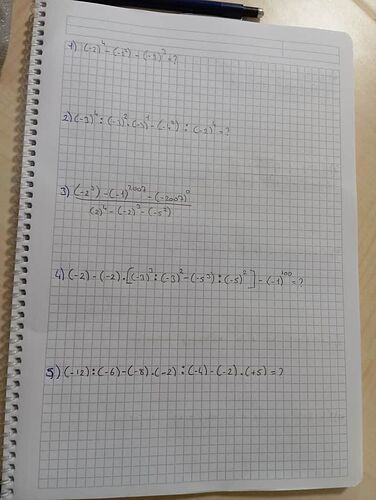 1) (-2)⁴ - (-2²) - (-3)³ = ?
2) (-3)⁴ : (-3)² · (-3)¹ - (-4²) : (-2)⁴ = ?
3) (-2³) - (-1)²⁰⁰⁷ - (-2007)⁰
(2)⁴ - (-2)³ - (-5²)
4) (-2) - (-2) · [(-3)³ : (-3)² - (-5³) : (-5)²] - (-1)¹⁰⁰ = ?
5) (-12) : (-6) - (-8) · (-2) : (-4) - (-2) · (+5) = ?